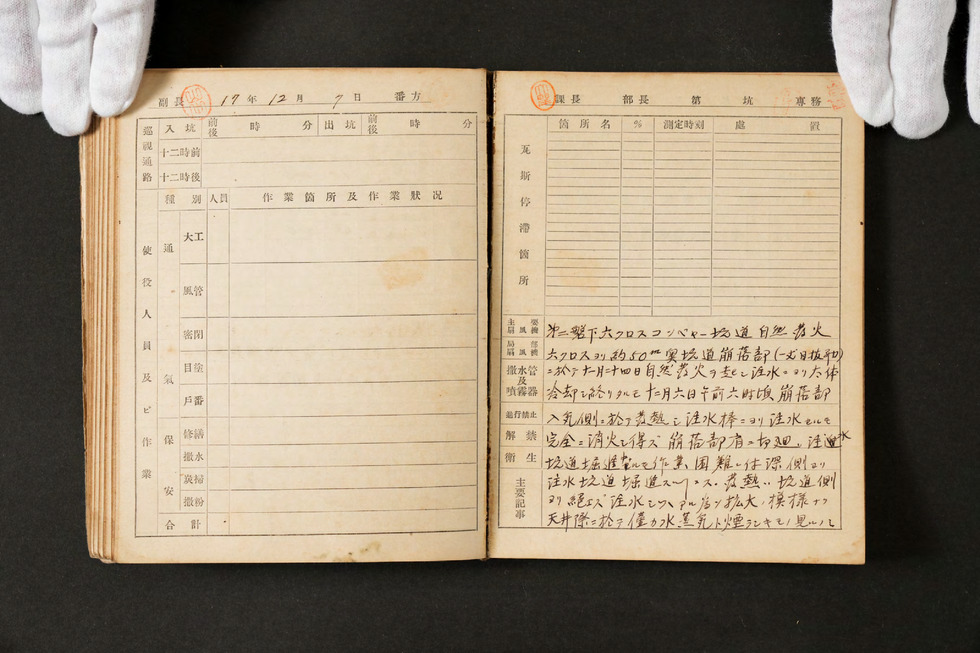 副長 17年12月7日 番方
巡視通路 入坑 前後 時 分 出坑 前後 時 分
十二時前
十二時後
使役人員及ビ作業
種別 人員 作業箇所及作業狀況
通氣
大工
風管
密閉
目塗
戸番
保安
修繕
撒水
炭掃
撒粉
合計
課長 部長 第 坑 專務
瓦斯停滯箇所
箇所名 % 測定時刻 處置
主要扇風機
局部扇風機
撒水管及噴霧器
進行禁止
解禁
衛生
主要記事
第二盤下六クロスコンベヤー坑道自然発火
六クロスヨリ約50m奥坑道崩落部
ニ於テ十一月二十四日自然発火ヲ起シ注水ニヨリ大体
冷却シ終リタルモ十二月六日午前六時頃崩落部
入気側ニ於テ発熱シ注水棒ニヨリ注水セルモ
完全ニ消火シ得ズ崩落部
坑道掘進 作業困難 深側ヨリ
注水坑道掘進スル 発熱ハ坑道側
ヨリ絶エズ注水シツツアル為 拡大ノ模様ナク
天井際ニ於テ僅カ水蒸気ト煙